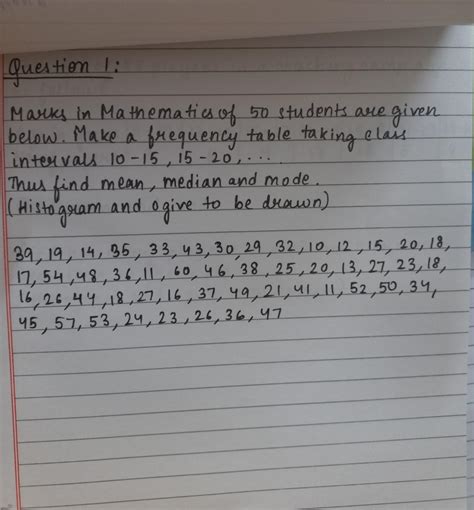 Question 1:
Marks in Mathematics of 50 students are given
below. Make a frequency table taking class
intervals 10-15, 15-20, ...
Thus find mean, median and mode.
(Histogram and ogive to be drawn)
39, 19, 14, 35, 33, 43, 30, 29, 32, 10, 12, 15, 20, 18,
17, 54, 48, 36, 11, 60, 46, 38, 25, 20, 13, 27, 23, 18,
16, 26, 44, 18, 27, 16, 37, 49, 21, 41, 11, 52, 50, 34,
45, 57, 53, 24, 23, 26, 36, 47